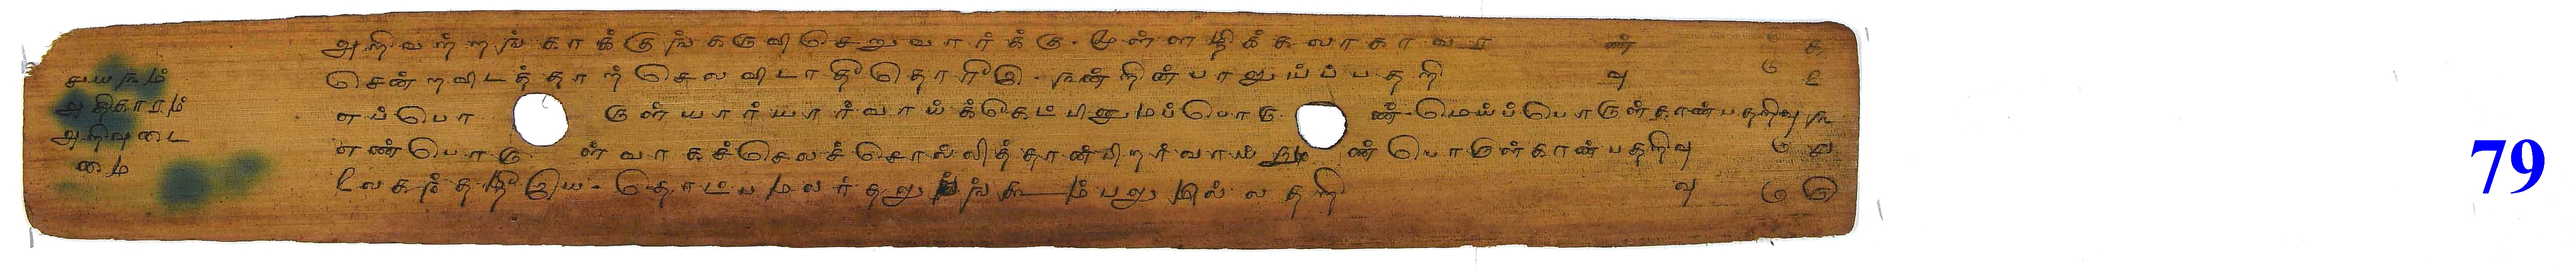 சுயக௩ம்
அதிகாரம்
அறிவுடை
மை
அறிவற்றங் காக்குங் கருவி செறுவார்க்கு - முள்ளழிக்க லாகா வரண் க
சென்ற விடத்தாற் செல விடா தீதொரீஇ - நன்றின்பா லுய்ப்ப தறிவு ௨
எப்பொருள் யார்யார்வாய்க் கெட்பினு மப்பொருண் - மெய்ப்பொருள் காண்ப தறிவு ௩
எண்பொருள் வாகச் செலச் சொல்லித் தான் பிறர்வாய் நுண்பொருள் காண்ப தறிவு ௪
லகந் தழீஇய - தொட்ப மலர்தலுங் கூம்பலு மில்ல தறிவு ரு
79